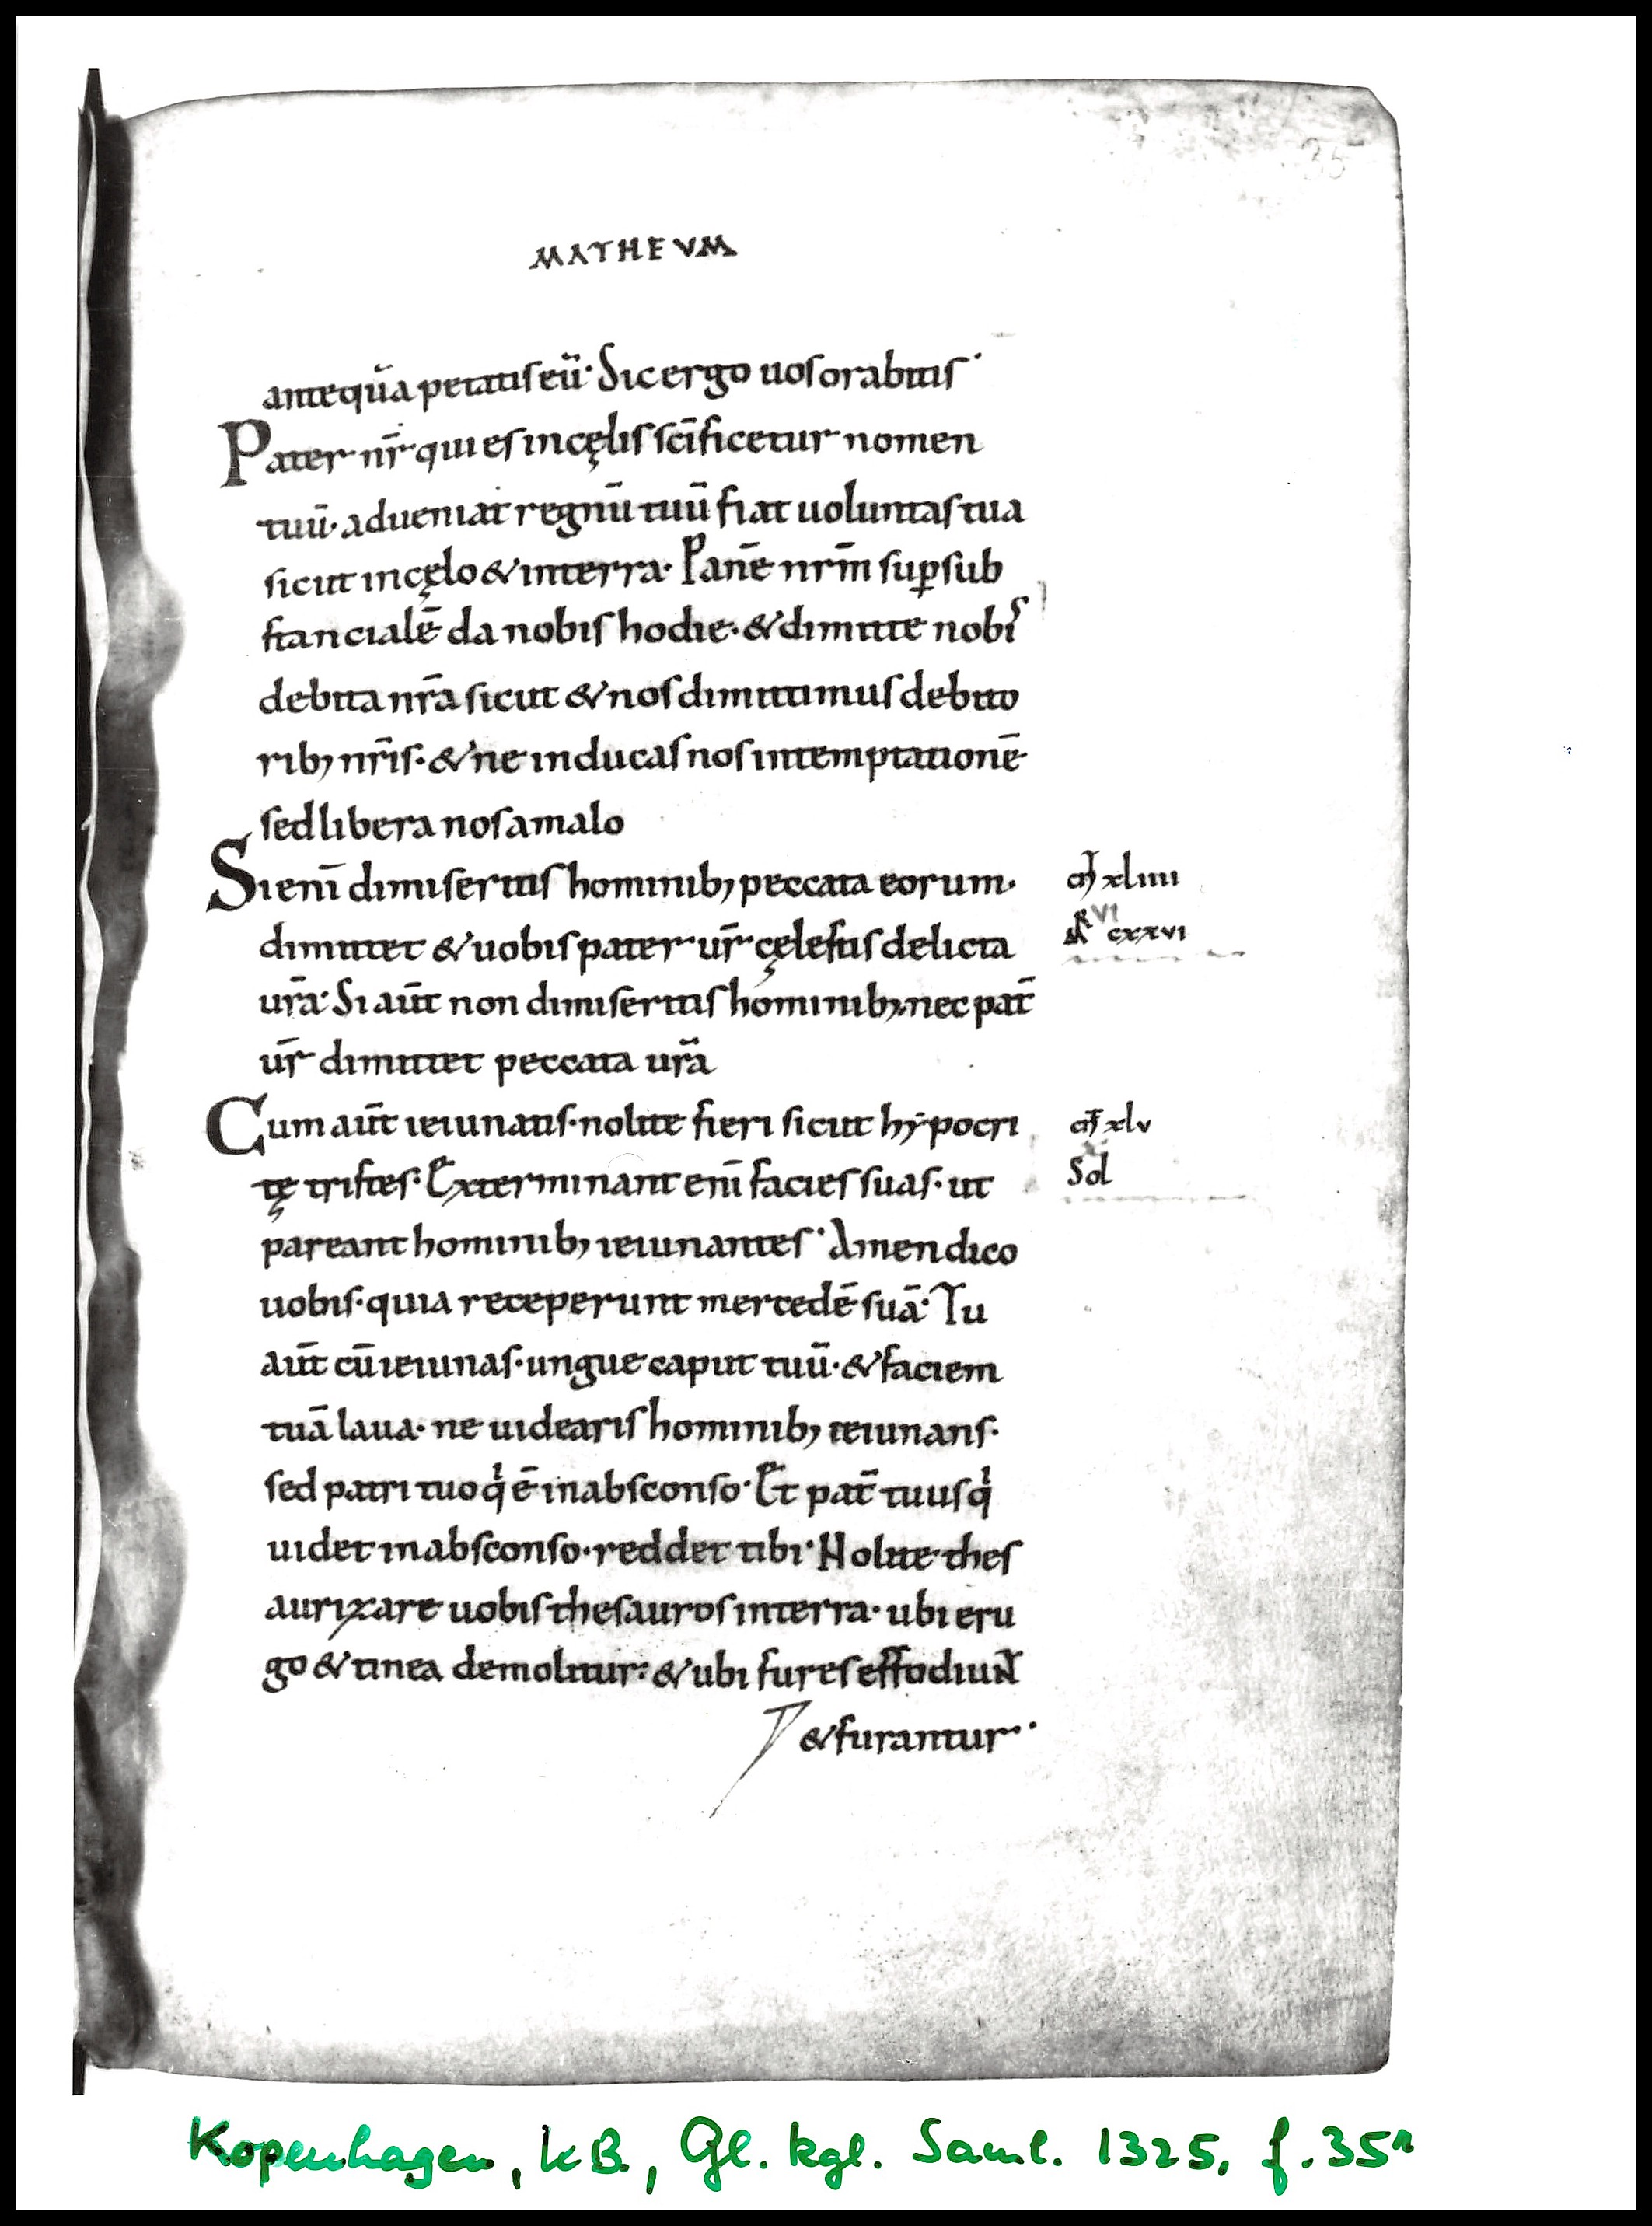 35
MATHEVM
antequā petatis eū· Sic ergo uos orabitis·
Pater nr̄ qui es in cęlis sc̄ificetur nomen
tuū· adueniat regnū tuū fiat uoluntas tua
sicut in cęlo & in terra· Panē nrm̄ suꝑsub
stancialē da nobis hodie· & dimitte nobis
debita nr̄a sicut & nos dimittimus debito
rib; nr̄is· & ne inducas nos in temptationē
sed libera nos a malo
Si enī dimiseritis hominib; peccata eorum· cī xliiii
dimittet & uobis pater ur̄ cęlestis delicta VI cxxvi
ur̄a· Si aūt non dimiseritis hominib;· nec pat̄
ur̄ dimittet peccata ur̄a
Cum aūt ieiunatis· nolite fieri sicut hẏpocri xlv
tę tristes· Exterminant enī facies suas· ut Sol
pareant hominib; ieiunantes· Amen dico
uobis· quia receperunt mercedē suā· Tu
aūt cū ieiunas· ungue caput tuū· & faciem
tuā laua· ne uidearis hominib; ieiunans·
sed patri tuo qͥ ē in absconso· Et pat̄ tuus qͥ
uidet in absconso· reddet tibi· Nolite thes
aurizare uobis thesauros in terra· ubi eru
go & tinea demolitur· & ubi fures effodiunt
& furantur·
Kopenhagen, KB, Gl. kgl. Saml. 1325, f. 35r